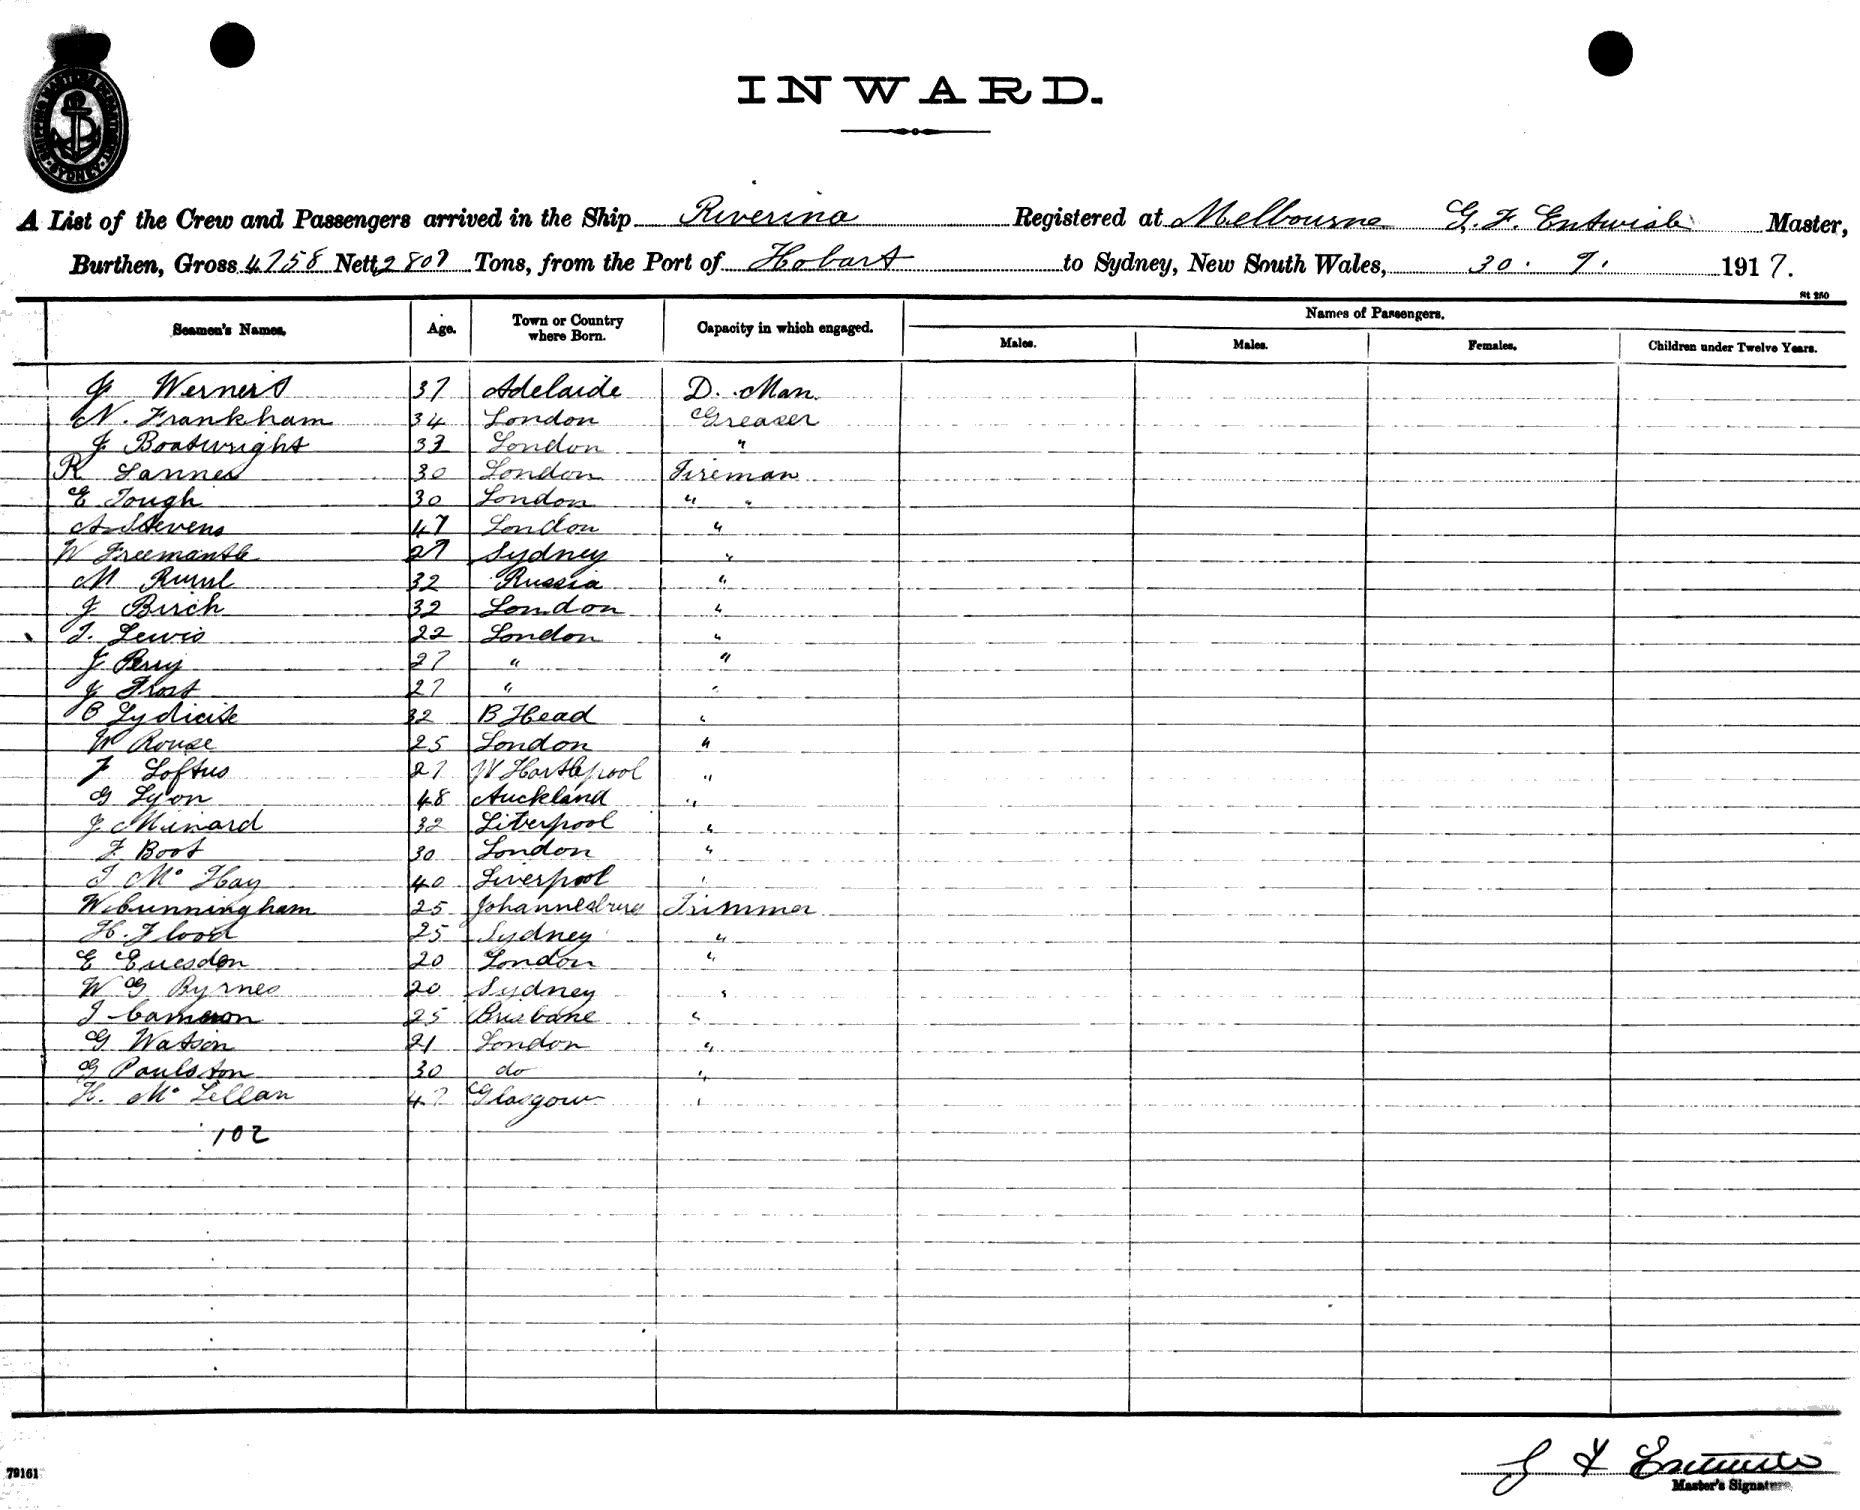 SHIPPING MASTER'S DEPARTMENT SYDNEY
INWARD.
A List of the Crew and Passengers arrived in the Ship Riverina Registered at Melbourne G. F. Entwisle Master,
Burthen, Gross 4758 Nett 2807 Tons, from the Port of Hobart to Sydney, New South Wales, 30. 9. 1917.
St 250
Seamen's Names. Age. Town or Country where Born. Capacity in which engaged. Names of Passengers.
Males. Males. Females. Children under Twelve Years.
J Werner 37 Adelaide D. Man.
N. Frankham 34 London Greaser
J Boatwright 33 London "
R Lannes 30 London Fireman
E Tough 30 London " "
A Stevens 47 London "
W Freemantle 27 Sydney "
M 32 Russia "
J Birch 32 London "
J. Lewis 22 London "
J Perry 27 " "
J Frost 27 " "
32 B Head "
W Rouse 25 London "
F Loftus 27 W Hartlepool "
G Lyon 48 Auckland "
J Minard 32 Liverpool "
F Boot 30 London "
J Mc Hay 40 Liverpool "
W. Cunningham 25 Johannesburg Trimmer
H. Flood 25 Sydney "
E Euesdon 20 London "
W G Byrnes 20 Sydney "
J Cameron 25 Brisbane "
G Watson 21 London "
G Paulston 30 do "
H. Mc Lellan 47 Glasgow "
102
G F Entwisle
Master's Signature.
79161